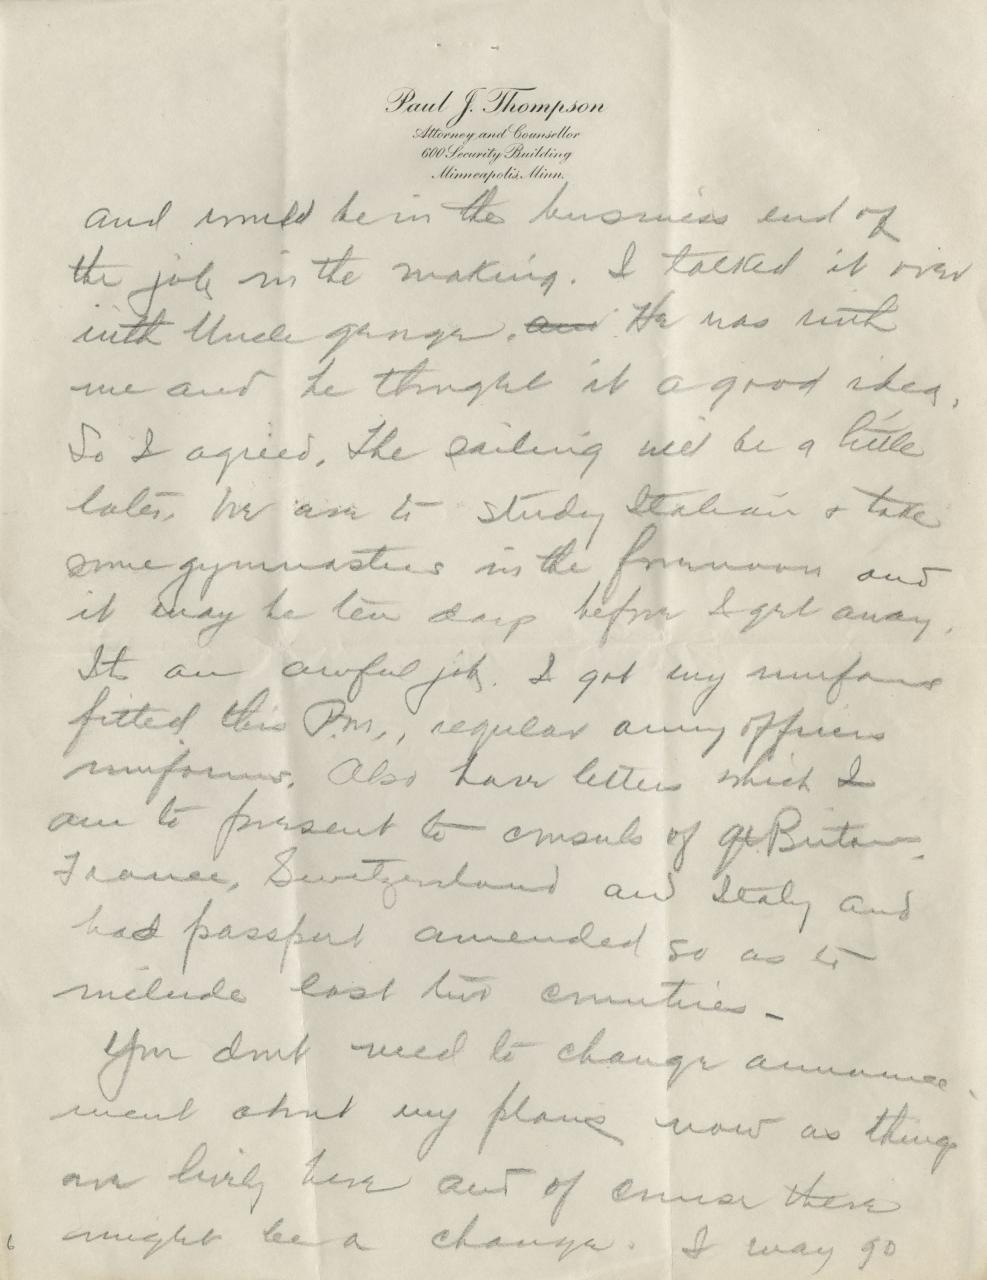 Paul J. Thompson
Attorney and Counsellor
600 Security Building
Minneapolis, Minn.
and would be in the business end of
the job in the making. I talked it over
with Uncle George. and He was with
me and he thought it a good idea.
So I agreed. The sailing will be a little
later. We are to study Italian & take
some gymnastics in the forenoon and
it may be ten days before I get away.
Its an awful job. I got my uniform
fitted this P.M., regular army officers
uniforms. Also have letters which I
am to present to consuls of Gt Britain,
France, Switzerland and Italy and
had passport amended so as to
include last two countries –
You dont need to change announce-
ment about my plans now as things
are lively here and of course there
might be a change. I may go
6